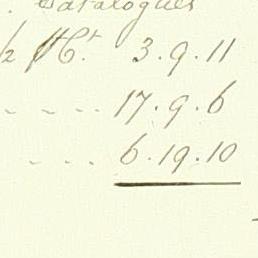 . Catalogues
½ Ct. 3.9.11
17.9.6
6.19.10